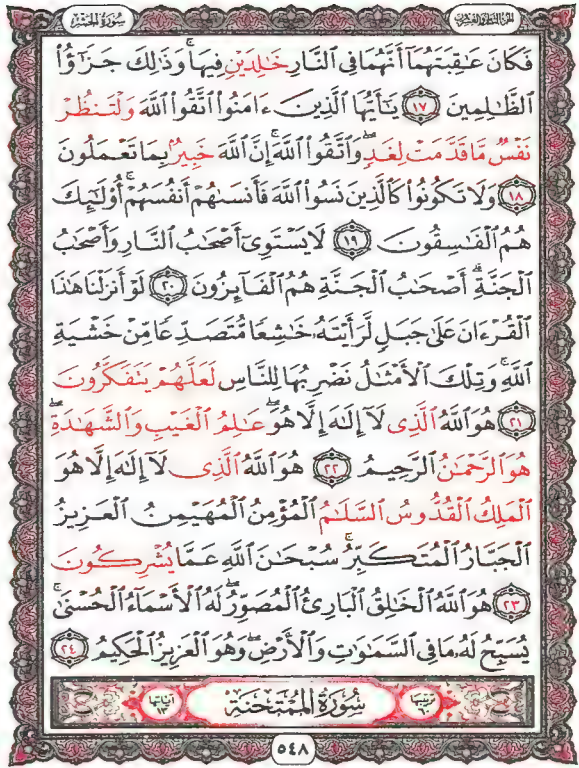 سُورَةُ الحَشْرِ الجزء الثامن والعشرون
فَكَانَ عَٰقِبَتَهُمَآ أَنَّهُمَا فِي ٱلنَّارِ خَٰلِدَيْنِ فِيهَا ۚ وَذَٰلِكَ جَزَٰٓؤُا۟
ٱلظَّٰلِمِينَ ١٧ يَٰٓأَيُّهَا ٱلَّذِينَ ءَامَنُوا۟ ٱتَّقُوا۟ ٱللَّهَ وَلْتَنظُرْ
نَفْسٌ مَّا قَدَّمَتْ لِغَدٍ ۖ وَٱتَّقُوا۟ ٱللَّهَ ۚ إِنَّ ٱللَّهَ خَبِيرٌۢ بِمَا تَعْمَلُونَ
١٨ وَلَا تَكُونُوا۟ كَٱلَّذِينَ نَسُوا۟ ٱللَّهَ فَأَنسَىٰهُمْ أَنفُسَهُمْ ۚ أُو۟لَٰٓئِكَ
هُمُ ٱلْفَٰسِقُونَ ١٩ لَا يَسْتَوِىٓ أَصْحَٰبُ ٱلنَّارِ وَأَصْحَٰبُ
ٱلْجَنَّةِ ۚ أَصْحَٰبُ ٱلْجَنَّةِ هُمُ ٱلْفَآئِزُونَ ٢٠ لَوْ أَنزَلْنَا هَٰذَا
ٱلْقُرْءَانَ عَلَىٰ جَبَلٍ لَّرَأَيْتَهُۥ خَٰشِعًا مُّتَصَدِّعًا مِّنْ خَشْيَةِ
ٱللَّهِ ۚ وَتِلْكَ ٱلْأَمْثَٰلُ نَضْرِبُهَا لِلنَّاسِ لَعَلَّهُمْ يَتَفَكَّرُونَ
٢١ هُوَ ٱللَّهُ ٱلَّذِى لَآ إِلَٰهَ إِلَّا هُوَ ۖ عَٰلِمُ ٱلْغَيْبِ وَٱلشَّهَٰدَةِ ۖ
هُوَ ٱلرَّحْمَٰنُ ٱلرَّحِيمُ ٢٢ هُوَ ٱللَّهُ ٱلَّذِى لَآ إِلَٰهَ إِلَّا هُوَ
ٱلْمَلِكُ ٱلْقُدُّوسُ ٱلسَّلَٰمُ ٱلْمُؤْمِنُ ٱلْمُهَيْمِنُ ٱلْعَزِيزُ
ٱلْجَبَّارُ ٱلْمُتَكَبِّرُ ۚ سُبْحَٰنَ ٱللَّهِ عَمَّا يُشْرِكُونَ
٢٣ هُوَ ٱللَّهُ ٱلْخَٰلِقُ ٱلْبَارِئُ ٱلْمُصَوِّرُ ۖ لَهُ ٱلْأَسْمَآءُ ٱلْحُسْنَىٰ ۚ
يُسَبِّحُ لَهُۥ مَا فِي ٱلسَّمَٰوَٰتِ وَٱلْأَرْضِ ۖ وَهُوَ ٱلْعَزِيزُ ٱلْحَكِيمُ ٢٤
ترتيبها ٦٠ سُورَةُ المُمْتَحَنَة آياتها ١٣
٥٤٨